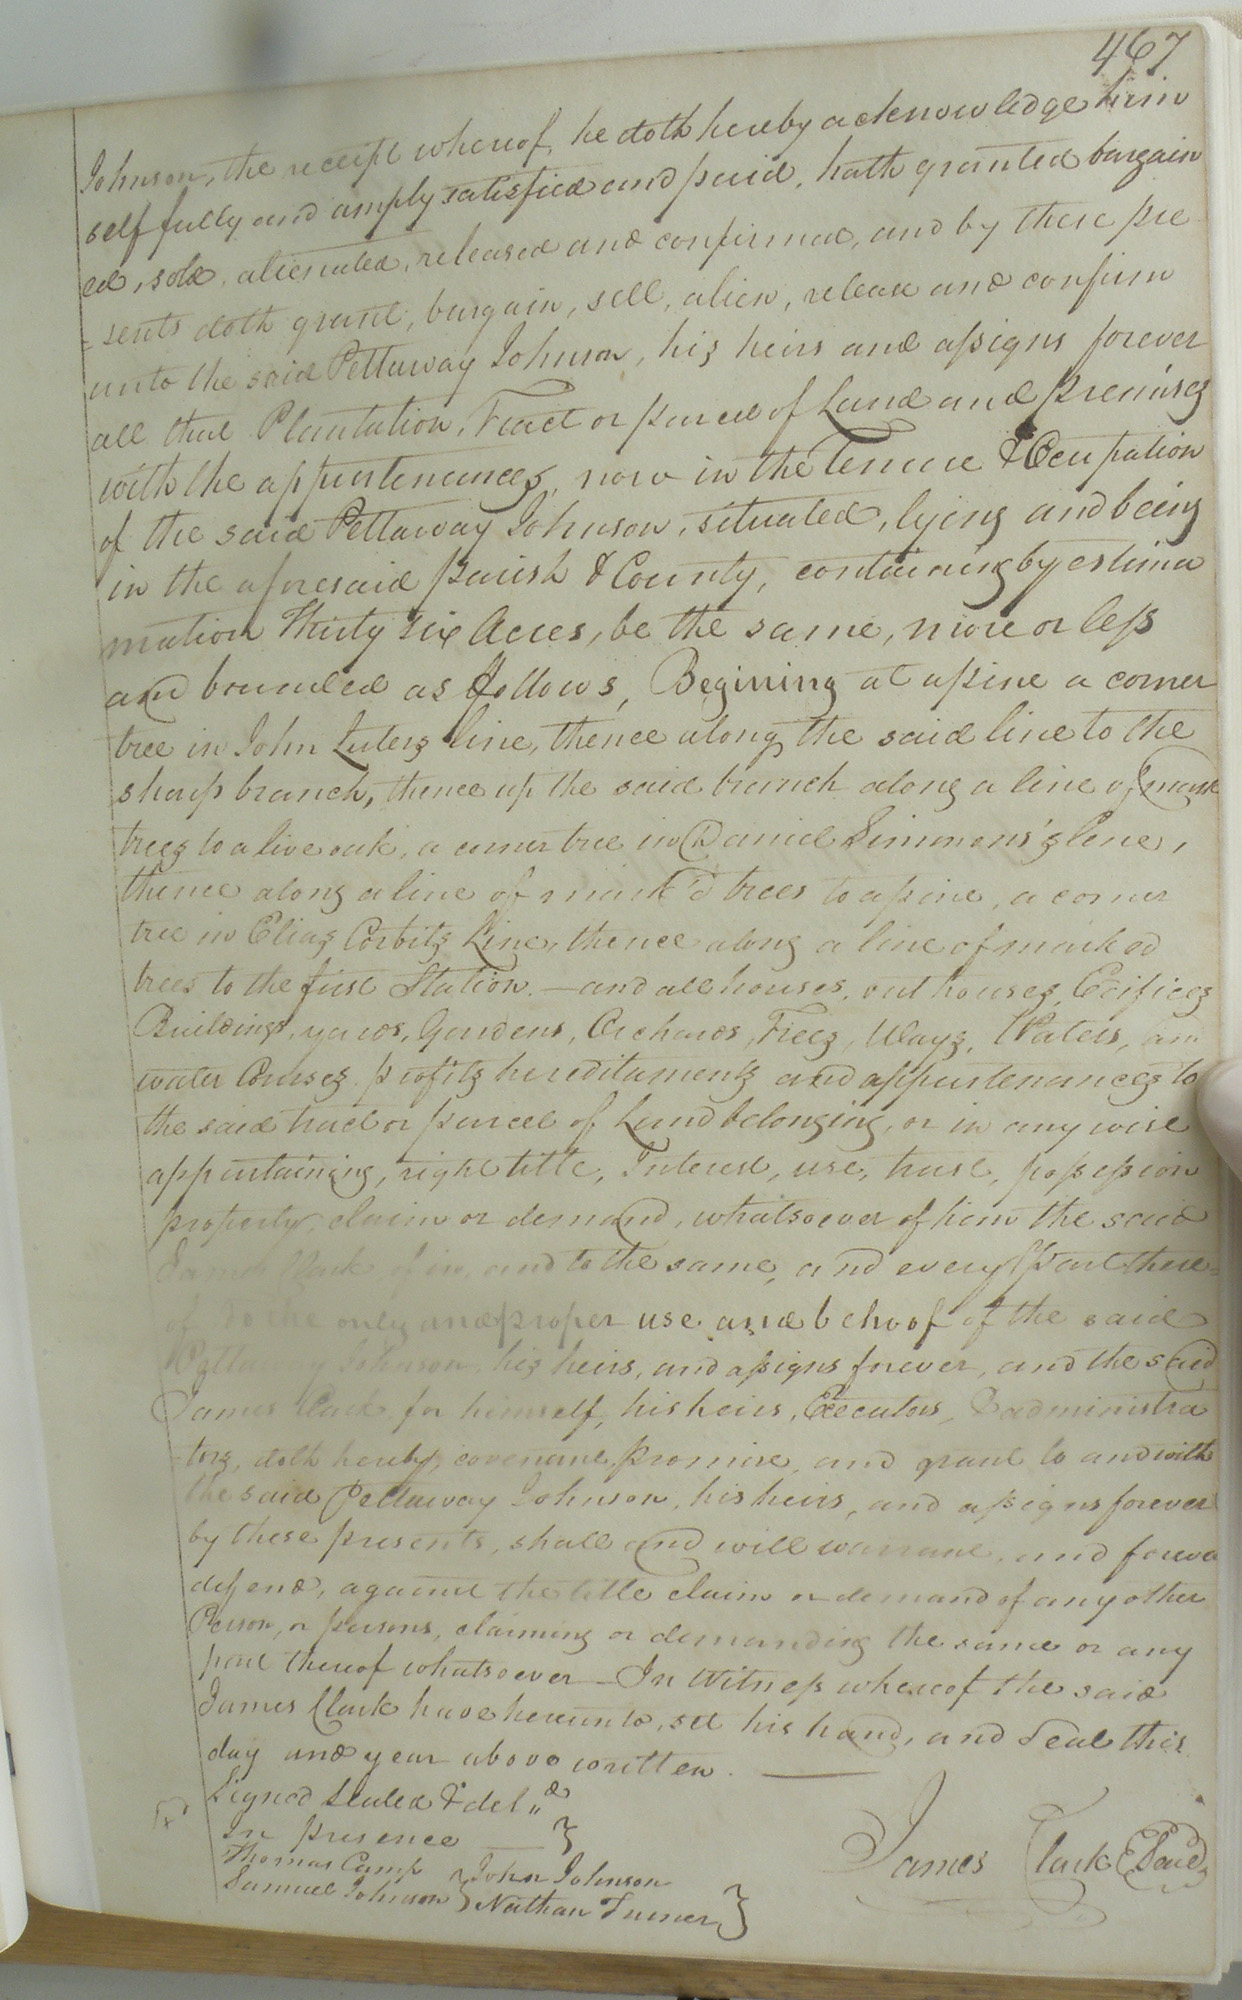 467
Johnson, the receipt whereof, he doth hereby acknowledge him
self fully and amply satisfied and paid, hath granted bargain
ed, sold, alienated, released and confirmed, and by these pre
=sents doth grant, bargain, sell, alien, release and confirm
unto the said Pettaway Johnson, his heirs and assigns forever
all that Plantation, Tract or parcel of Land and premises
with the appurtenances, now in the Tenure & Occupation
of the said Pettaway Johnson, situated, lying and being
in the aforesaid parish & County, containing by estima
mation Thirty six Acres, be the same, more or less
and bounded as follows, Begining at a pine a corner
tree in John Luters line, thence along the said line to the
sharp branch, thence up the said branch along a line of mark
trees to a live oak, a corner tree in Daniel Simmons's line,
thence along a line of mark'd trees to a pine, a corner
tree in Elias Corbits Line, thence along a line of marked
trees to the first Station. — and all houses, out houses, Edifices
Buildings, yards, Gardens, Orchards, Trees, Ways, Waters, an
water Courses, profits hereditaments and appurtenances to
the said tract or parcel of Land belonging, or in any wise
appurtaining, right title, Interest, use, trust, possession
property, claim or demand, whatsoever of him the said
James Clark of in, and to the same, and every part there=
of to the only and proper use and behoof of the said
Pettaway Johnson, his heirs, and assigns forever, and the said
James Clark for himself, his heirs, Executors, & administra
tors, doth hereby, covenant, promise, and grant to and with
the said Pettaway Johnson, his heirs, and assigns forever
by these presents, shall and will warrant, and forever
defend, against the title claim or demand of any other
Person, or persons, claiming or demanding the same or any
part thereof whatsoever — In Witness whereof the said
James Clark have hereunto, set his hand, and Seal this
day and year above written. —
Signed Sealed & del"d
In presence }
Thomas Camp } John Johnson
Samuel Johnson } Nathan Turner }
James Clark Seal